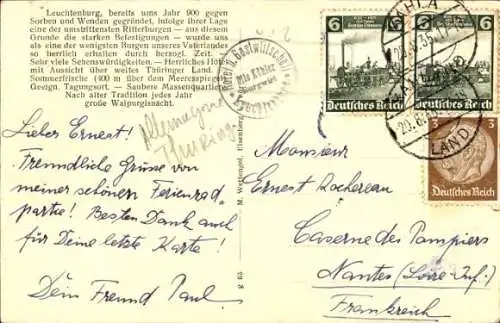 Leuchtenburg, bereits ums Jahr 900 gegen
Sorben und Wenden gegründet, infolge ihrer Lage
eine der umstrittensten Ritterburgen — aus diesem
Grunde die starken Befestigungen — wurde uns
als eine der wenigsten Burgen unseres Vaterlandes
so herrlich erhalten durch herzogl. Zeit.
Sehr viele Sehenswürdigkeiten. — Herrliches Hotel
mit Aussicht über weites Thüringer Land.
Sommerfrische (400 m über dem Meeresspiegel)
Geeign. Tagungsort. — Saubere Massenquartiere
Nach alter Tradition jedes Jahr
große Walpurgisnacht.
Hotel u. Gastwirtschaft
Nilo Köhler
Leuchtenburg
Allemagne
Thuringe
Lieber Ernest!
Freundliche Grüsse von
meiner schönen Ferienrad-
partie! Besten Dank auch
für Deine letzte Karte!
Dein Freund Paul.
M. Weßlengel, Eisenberg
g 65
6
6
Deutsches Reich
Deutsches Reich
KAHLA
LAND
3
Deutsches Reich
Monsieur
Ernest Rochereau
Caserne des Pompiers
Nantes (Loire-Inf.)
Frankreich